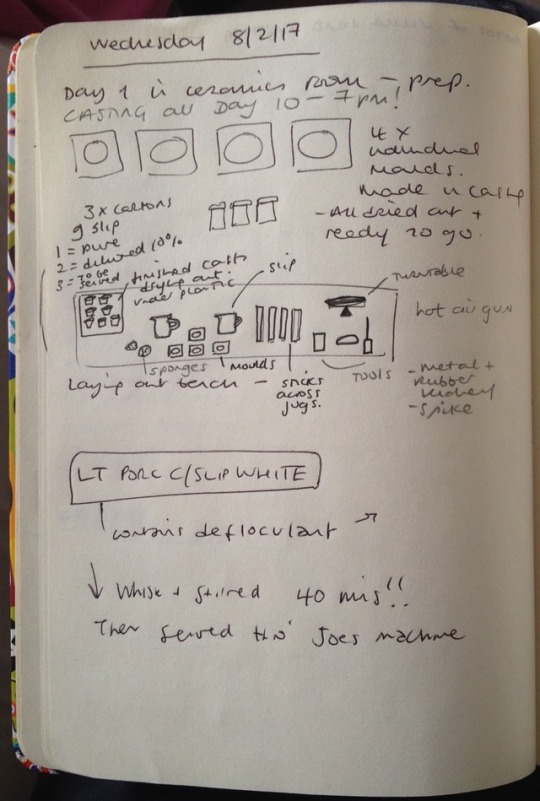 Wednesday 8/2/17
Day 1 in ceramics room - prep.
CASTING all DAY 10 - 7pm!
4 x
individual
moulds.
Made in
- All dried out +
ready to go.
3 x cartons
of slip
1 = pure
2 = diluted 10%
3 = To be
served
finished casts
drying out
under plastic
slip
TURNTABLE
hot air gun
sponges
moulds
Laying out bench -
sticks
across
jugs.
TOOLS
- metal +
Rubber
kidney
- Spike
LT PORC C/SLIP WHITE
contains defloculant
Whisk + stirred 40 mis!!
Then served thro' Joes machine